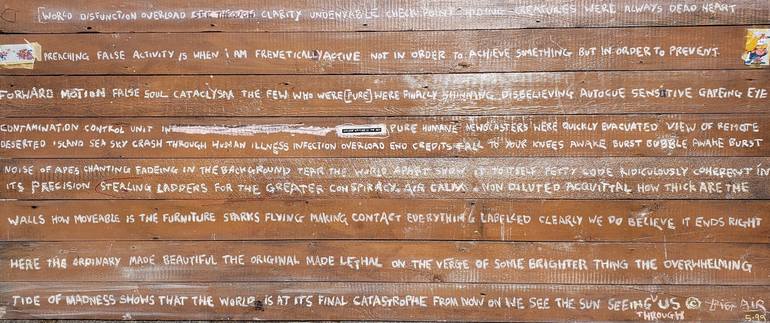 [WORLD DISFUNCTION OVERLOAD SEE THROUGH CLARITY UNDENYABLE CHECKPOINT HIDING CREATURES WERE ALWAYS DEAD HEART
PREACHING FALSE ACTIVITY IS WHEN i AM FRENETICALLY ACTIVE NOT IN ORDER to ACHIEVE SOMETHING BUT IN ORDER to PREVENT.
FORWARD MOTION FALSE SOUL CATACLYSM THE FEW WHO WERE [PURE] WERE FINALLY SHINNING DISBELIEVING AUTOCUE SENSITIVE GAPEING EYE
CONTAMINATION CONTROL UNIT IN PURE HUMANE NEWSCASTERS WERE QUICKLY EVACUATED VIEW OF REMOTE
DESERTED ISLAND SEA SKY CRASH THROUGH HUMAN ILLNESS INFECTION OVERLOAD END CREDITS FALL TO YOUR KNEES AWAKE BURST BUBBLE AWAKE BURST
NOISE OF APES CHANTING FADEING IN THE BACKGROUND TEAR THE WORLD APART SHOW IT TO ITSELF PETTY CODE RIDICULOUSLY COHERENT IN
ITS PRECISION STEALING LADDERS FOR THE GREATER CONSPIRACY. AIR CALM. NON DILUTED ACQUITTAL HOW THICK ARE THE
WALLS HOW MOVEABLE IS THE FURNITURE STARKS FLYING MAKING CONTACT EVERYTHING LABELLED CLEARLY WE DO BELIEVE IT ENDS RIGHT
HERE THE ORDINARY MADE BEAUTIFUL THE ORIGINAL MADE LETHAL ON THE VERGE OF SOME BRIGHTER THING THE OVERWHELMING
TIDE OF MADNESS SHOWS THAT THE WORLD IS AT ITS FINAL CATASTROPHE FROM NOW ON WE SEE THE SUN SEEING US © AIR
THROUGH 5-99